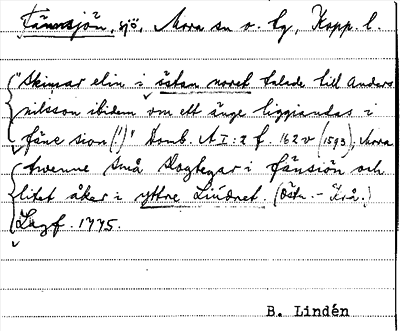 Fännsjön, sjö, Mora sn o. lg, Kopp. l.
"Skinnar elin i östan noret talade till Anders
nilsson ibidem om ett änge liggiandes i
fäne sion (!)" Domb. A I:2 f. 162 v (1593), Mora
twenne små slogtegar i fänsiön och
litet åker i yttre Lindret. (Östn. - Krå.)
Lagf. 1775.
B. Lindén